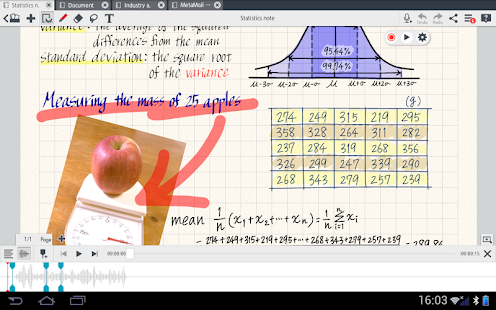 Statistics n..
Document
Industry a.
MetaMoJi ···
Statistics note
Undo
Redo
Share
variance: the average of the squared
differences from the mean
standard deviation: the square root
of the variance
95.44%
99.74%
μ-3σ μ-2σ μ-σ μ μ+σ μ+2σ μ+3σ
Measuring the mass of 25 apples
(g)
274 249 315 219 295
358 328 264 311 282
237 284 319 268 356
326 299 247 339 290
268 343 279 257 239
mean 1/n (x₁+x₂+···+xₙ) = 1/n Σ xᵢ
n
i=1
= 274+249+315+219+295+···+268+343+279+257+239
1/1 Page
00:00:00
00:00:15
16:03